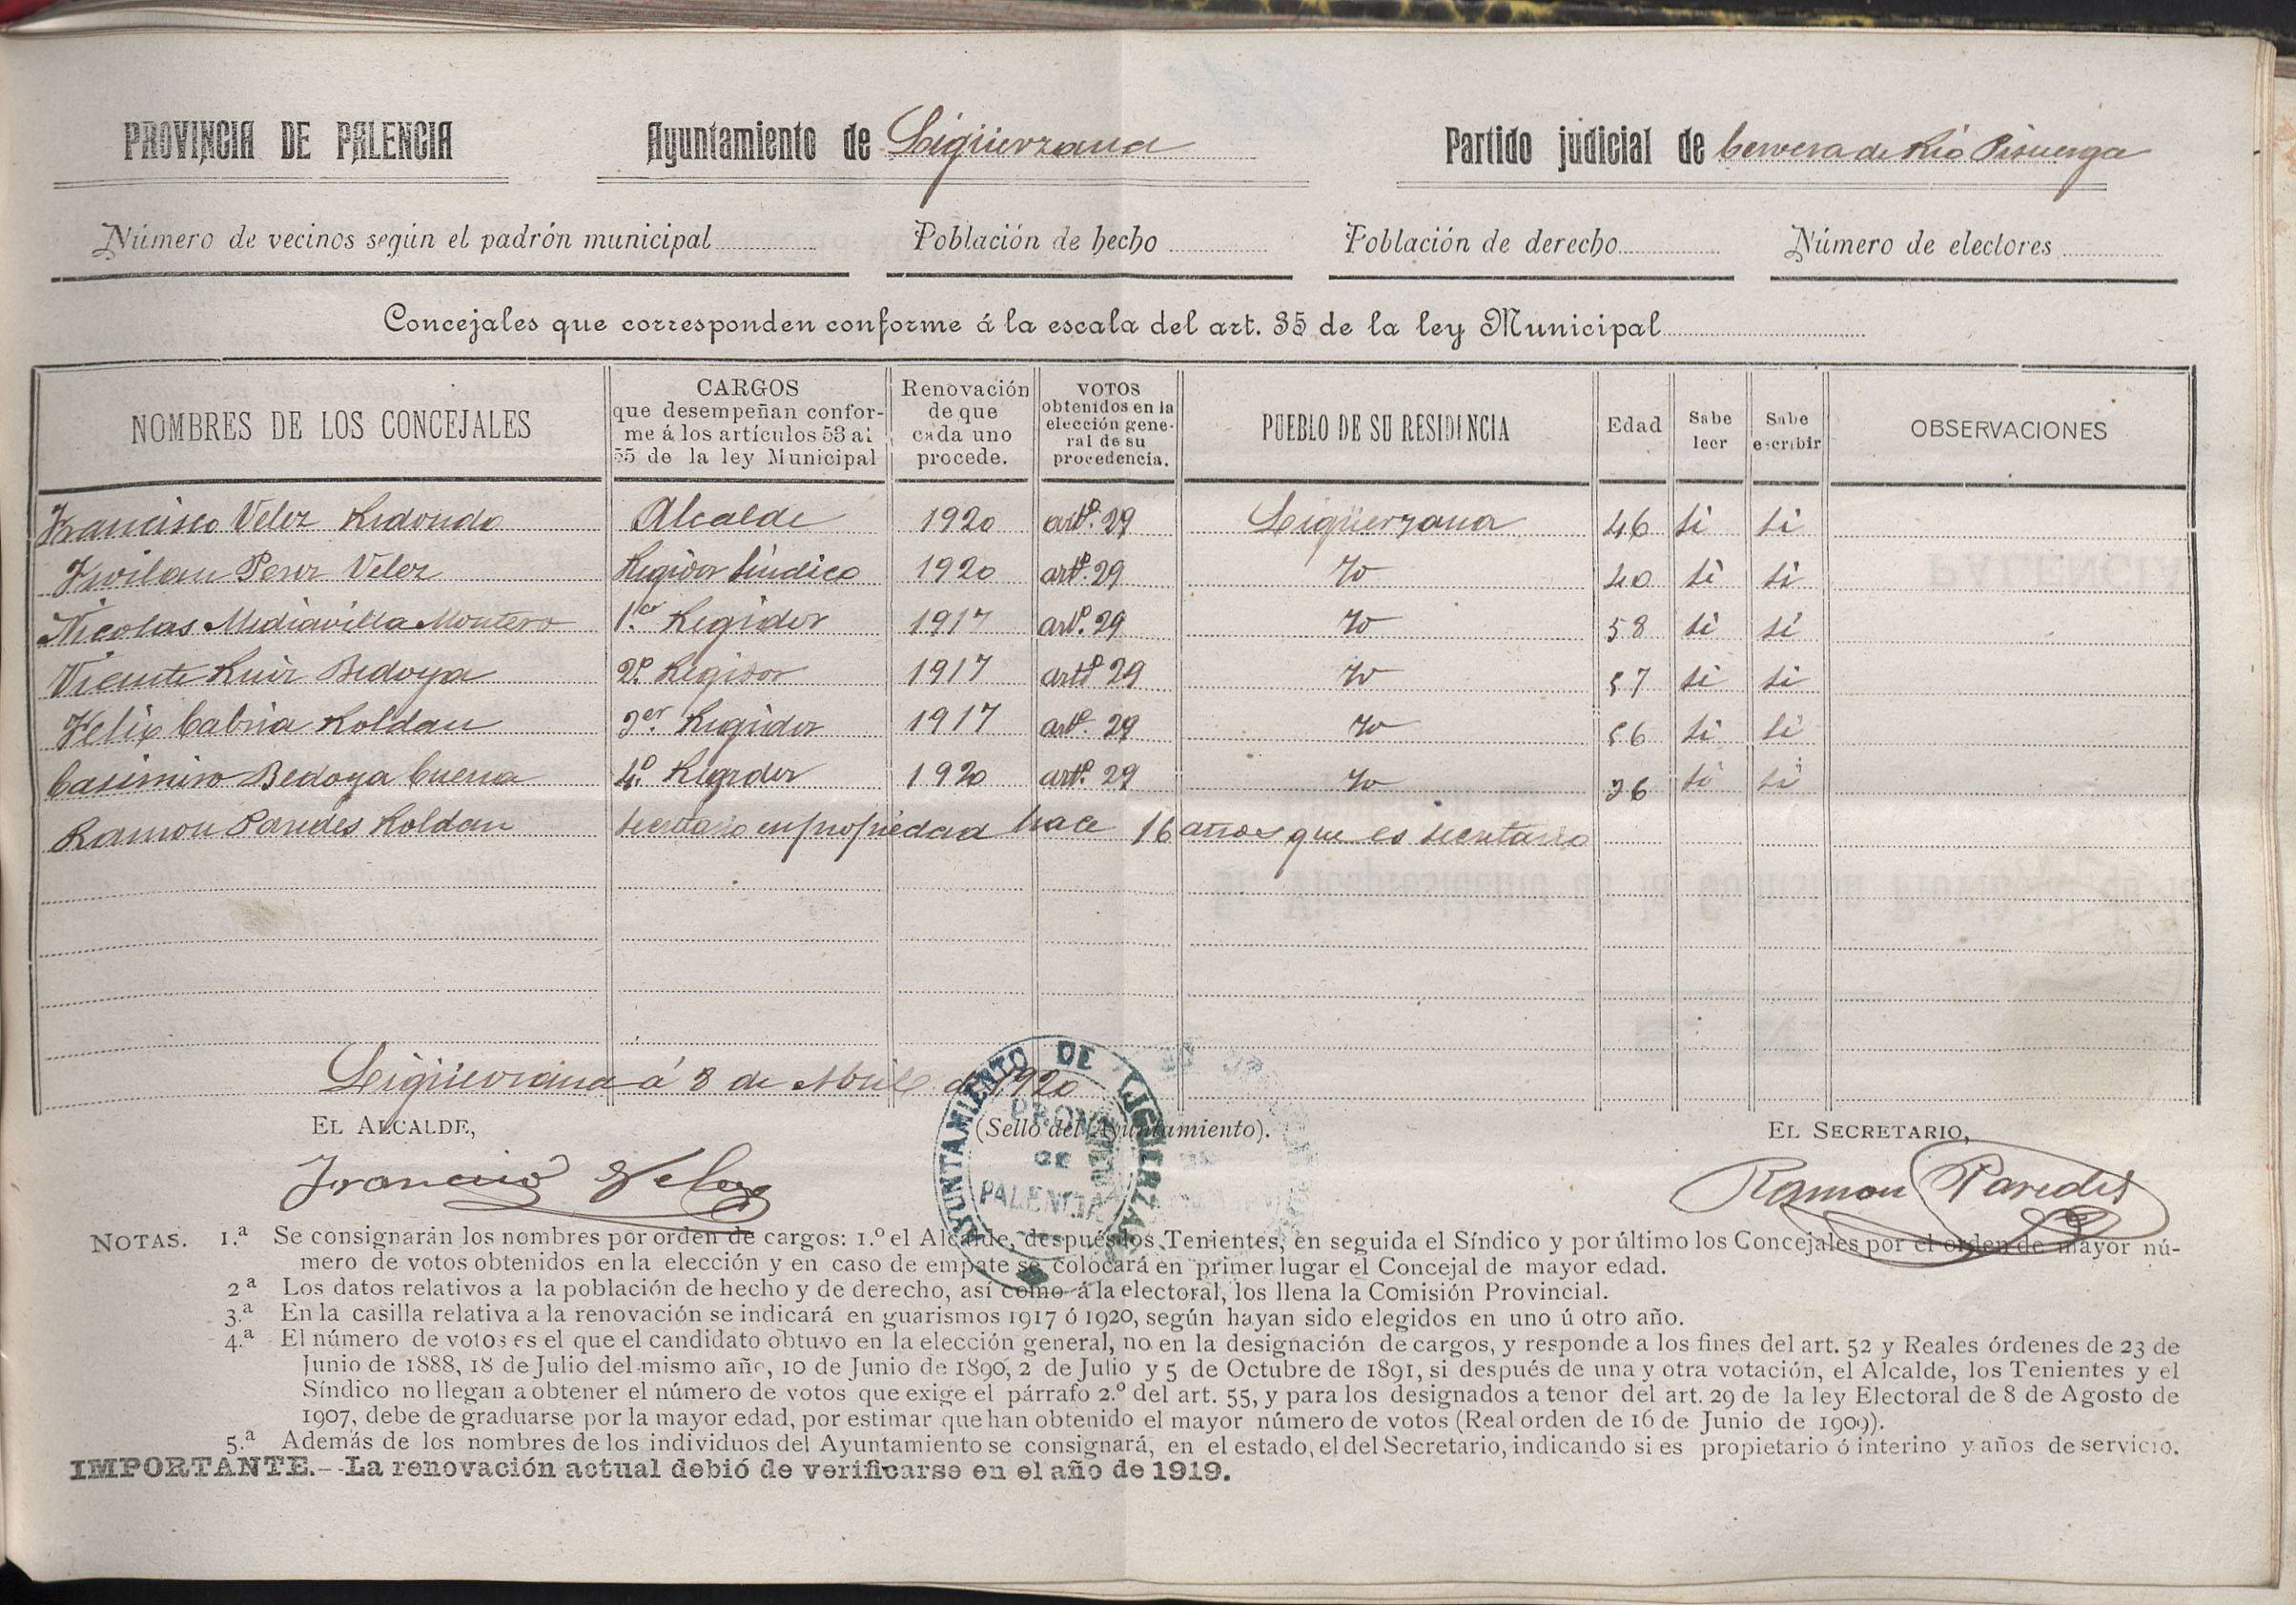 PROVINCIA DE PALENCIA Ayuntamiento de Ligüerzana Partido judicial de Cervera de Rio Pisuerga
Número de vecinos según el padrón municipal Población de hecho Población de derecho Número de electores
Concejales que corresponden conforme á la escala del art. 35 de la ley Municipal
NOMBRES DE LOS CONCEJALES
CARGOS
que desempeñan confor-
me á los artículos 53 al
55 de la ley Municipal
Renovación
de que
cada uno
procede.
VOTOS
obtenidos en la
elección gene-
ral de su
procedencia.
PUEBLO DE SU RESIDENCIA
Edad
Sabe
leer
Sabe
escribir
OBSERVACIONES
Francisco Velez Redondo Alcalde 1920 artº. 29 Ligüerzana 46 si si
Froilan Perez Velez Regidor Sindico 1920 artº. 29 Yd 40 si si
Nicolas Mediavilla Montero 1.er Regidor 1917 artº. 29 Yd 58 si si
Vicente Ruiz Bedoya 2º. Regidor 1917 artº 29 Yd 57 si si
Felix Cabria Roldan 3er. Regidor 1917 artº. 29 Yd 56 si si
Casimiro Bedoya Cuena 4º. Regidor 1920 artº. 29 Yd 36 si si
Ramon Paredes Roldan Secretario en propiedad hace 16 años que es secretario
Ligüerzana á 8 de Abril de 1920
EL ALCALDE, (Sello del Ayuntamiento). EL SECRETARIO,
AYUNTAMIENTO DE LIGÜERZANA
PROVINCIA
DE
PALENCIA
Francisco Velez Ramon Paredes
NOTAS. 1.ª Se consignarán los nombres por orden de cargos: 1.º el Alcalde, después los Tenientes, en seguida el Síndico y por último los Concejales por el orden de mayor nú-
mero de votos obtenidos en la elección y en caso de empate se colocará en primer lugar el Concejal de mayor edad.
2ª Los datos relativos a la población de hecho y de derecho, así como á la electoral, los llena la Comisión Provincial.
3.ª En la casilla relativa a la renovación se indicará en guarismos 1917 ó 1920, según hayan sido elegidos en uno ú otro año.
4.ª El número de votos es el que el candidato obtuvo en la elección general, no en la designación de cargos, y responde a los fines del art. 52 y Reales órdenes de 23 de
Junio de 1888, 18 de Julio del mismo año, 10 de Junio de 1890, 2 de Julio y 5 de Octubre de 1891, si después de una y otra votación, el Alcalde, los Tenientes y el
Síndico no llegan a obtener el número de votos que exige el párrafo 2.º del art. 55, y para los designados a tenor del art. 29 de la ley Electoral de 8 de Agosto de
1907, debe de graduarse por la mayor edad, por estimar que han obtenido el mayor número de votos (Real orden de 16 de Junio de 1909).
5.ª Además de los nombres de los individuos del Ayuntamiento se consignará, en el estado, el del Secretario, indicando si es propietario ó interino y años de servicio.
IMPORTANTE.—La renovación actual debió de verificarse en el año de 1919.